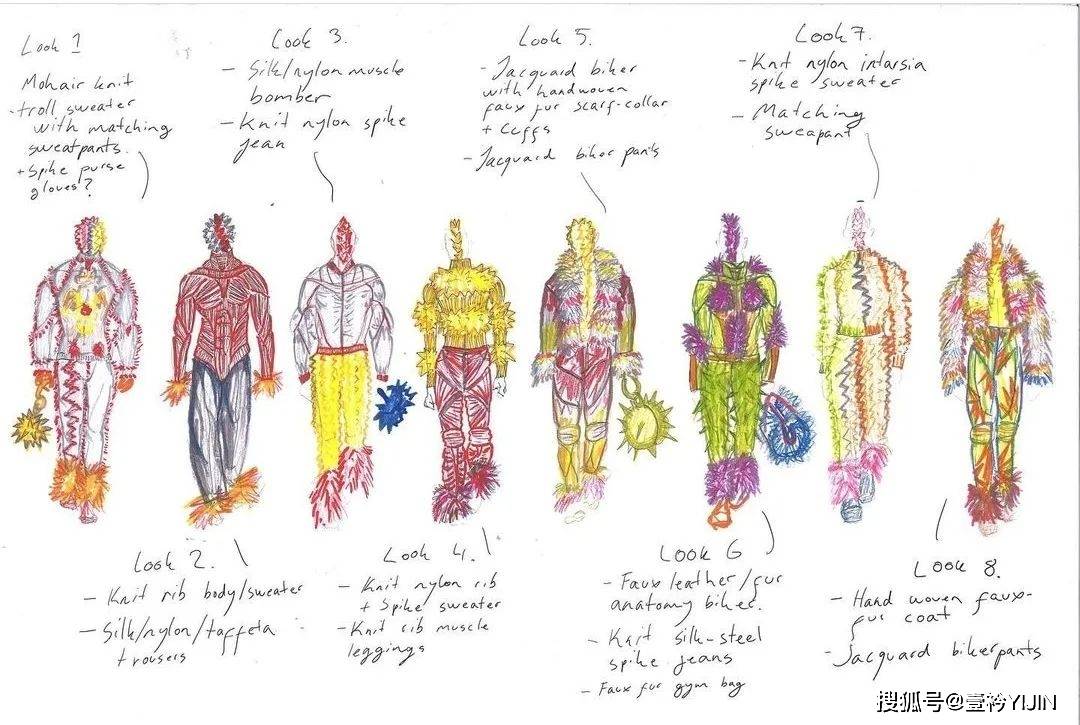 Look 1
Mohair knit
- troll sweater
with matching
sweatpants.
+ Spike purse
gloves?
Look 3.
- Silk/nylon muscle
bomber
- Knit nylon spike
jean
Look 5.
- Jacquard biker
with handwoven
faux fur scarf-collar
+ Cuffs
- Jacquard biker pants
Look 7.
- Knit nylon intarsia
spike sweater
- Matching
sweapant
Look 2.
- Knit rib body/sweater
- Silk/nylon/taffeta
trousers
Look 4.
- Knit nylon rib
+ Spike sweater
- Knit rib muscle
leggings
Look 6
- Faux leather/fur
anatomy biker.
- Knit silk-steel
spike jeans
- Faux fur gym bag
Look 8.
- Hand woven faux-
fur coat
- Jacquard bikerpants
搜狐号@壹衿YIJIN